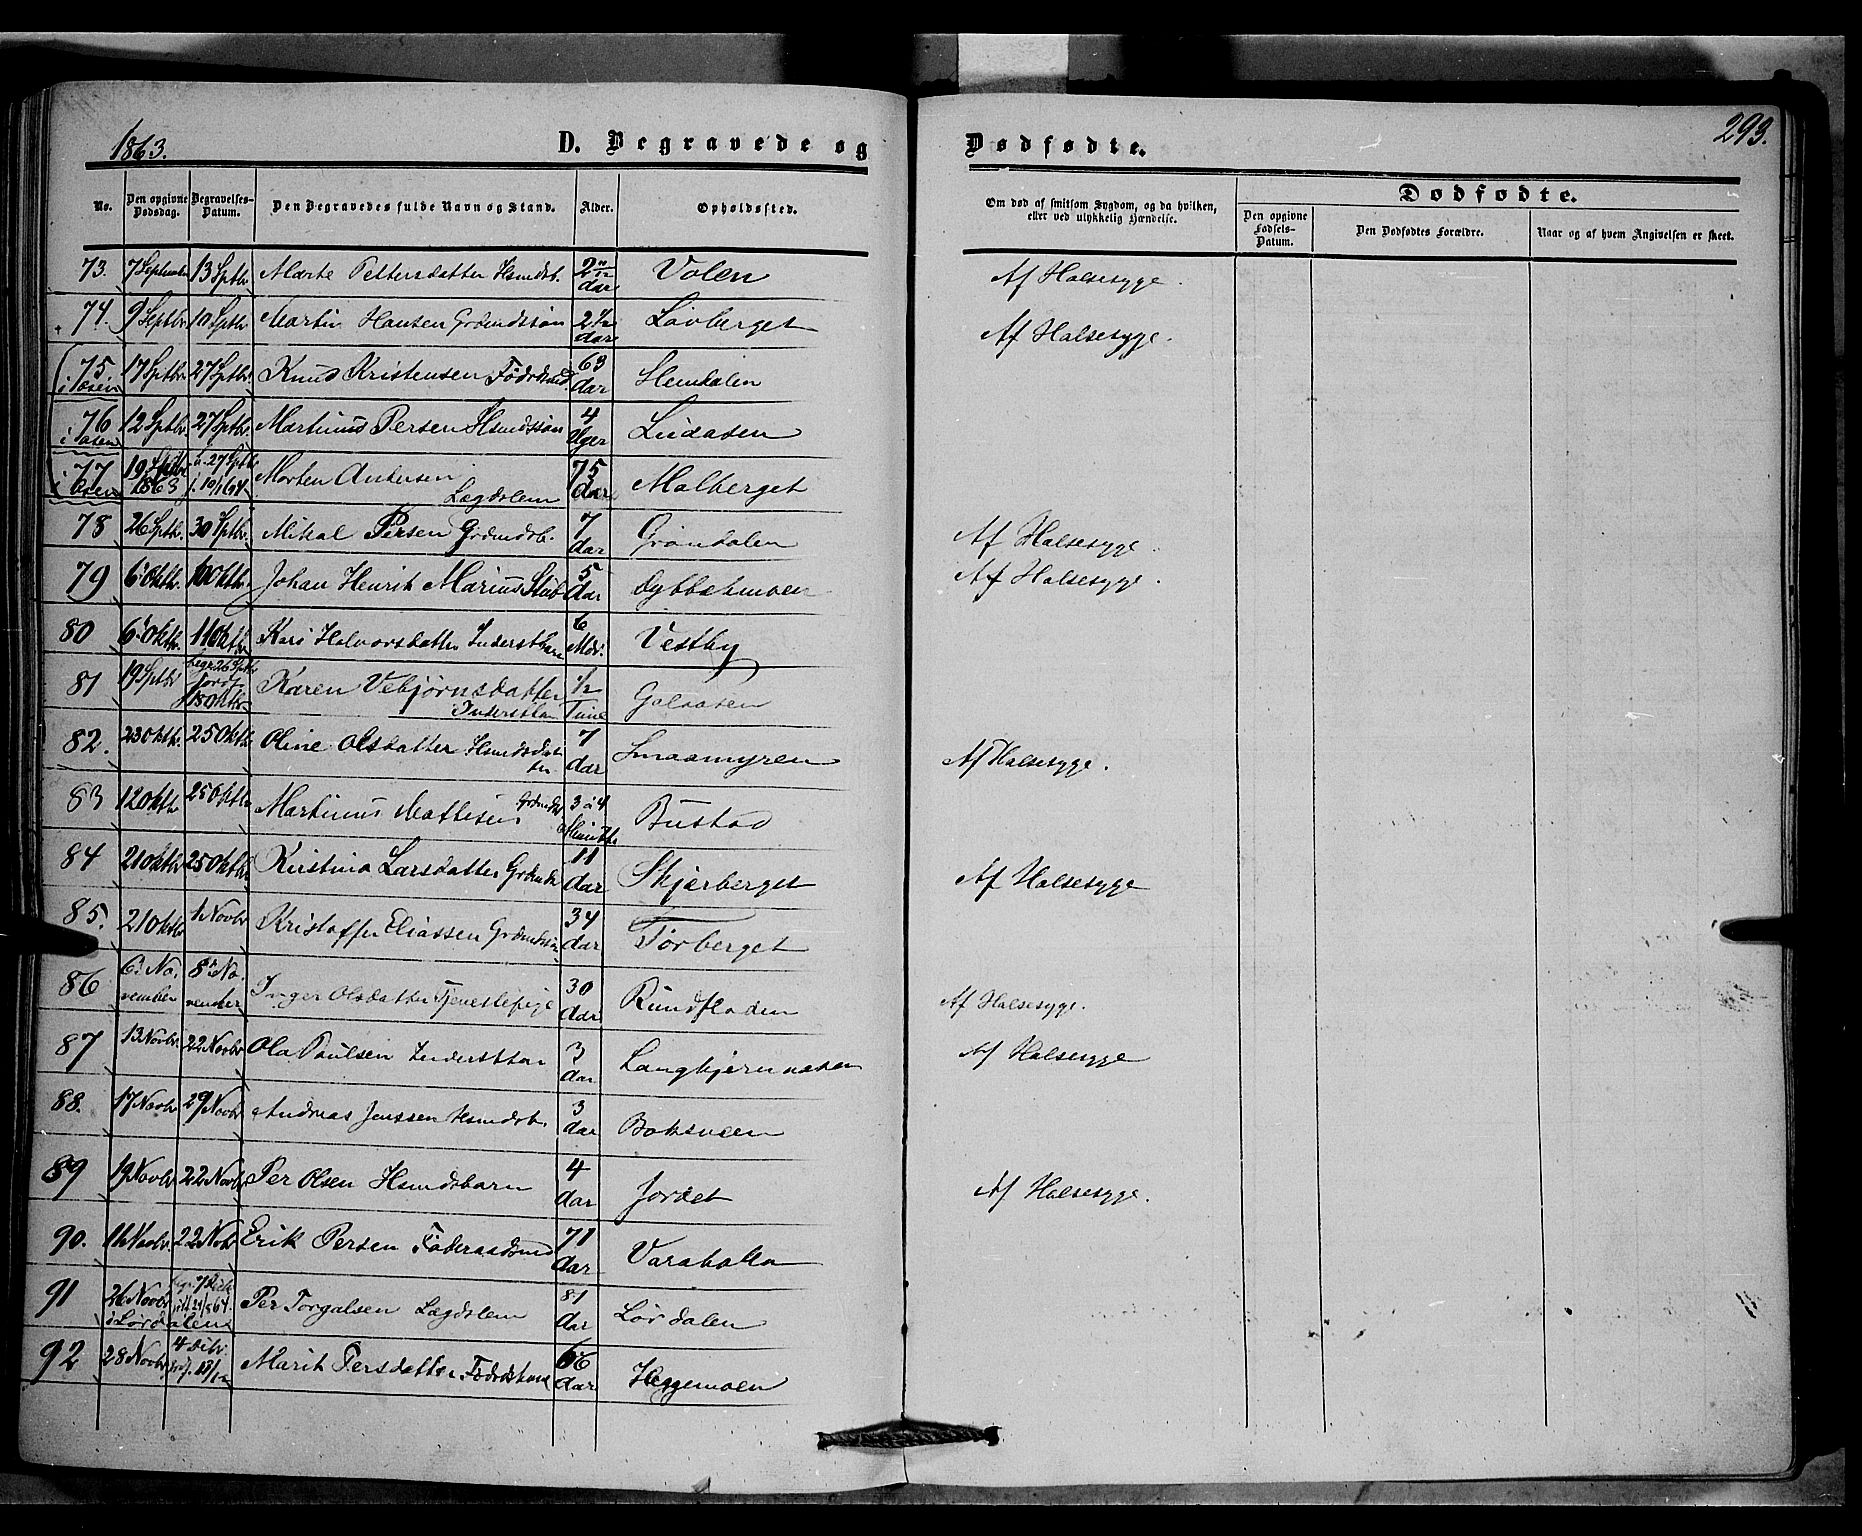 1863.
D. Begravede og Dødfødte.
293.
No. Den opgivne Dødsdag. Begravelses-Datum. Den Begravedes fulde Navn og Stand. Alder. Opholdssted. Om død af smitsom Sygdom, og da hvilken, eller ved ulykkelig Hændelse.
Dødfødte.
Den opgivne Fødsels-Datum. Den Dødfødtes Forældre. Naar og af hvem Angivelsen er skeet.
73. 7 September 13 Sptbr Marte Pettersdatter Hsmdsb. 2 11/12 Aar Volen Af Halsesyge.
74. 9 Septbr 10 Sptbr Martin Hansen Grdmdssøn 2 1/2 Aar Løvberget Af Halsesyge.
75 i Aasen 17 Sptbr 27 Sptbr. Knud Kristensen Føderdsmd. 63 Aar Hemdalen
76 i Aasen 12 Sptbr. 27 Sptbr. Martinus Persen Hsmdssøn 4 Uger Lidaasen
77 i Aasen 19 Sptbr. 1863 b. 27 Sptbr. j. 10/1 64 Morten Andersen Lægdslem 75 Aar Malberget
78 26 Sptbr. 30 Sptbr. Mikal Persen Grdmdsb. 7 Aar Grøndalen Af Halsesyge.
79 6 Oktbr. 10 Oktbr. Johan Henrik Marius Stub 5 Aar Af Halsesyge.
80 6 Oktbr. 11 Oktbr Kari Halvorsdatter Inderstbarn 6 Mdr. Vestby
81 19 Sptbr begr. 26 Sptbr jordf. 18 Oktbr. Karen Vebjørnsdatter Inderstbarn 1/2 Time Galaasen
82. 23 Oktbr. 25 Oktbr. Oline Olsdatter Hsmdsdatter 7 Aar Smaamyren Af Halsesyge.
83 12 Oktbr 25 Oktbr Martinus Mathisen Grdmdsb 3 à 4 Minutter Bustad
84 21 Oktbr 25 Oktbr Kristina Larsdatter Grdmdsb 11 Aar Skjærberget Af Halsesyge
85. 21 Oktbr 1 Novbr Kristoffer Eliassen Grdmdssøn 34 Aar Tørberget
86 6 November 8 November Inger Olsdatter Tjenestepige 30 Aar Rundfloden Af Halsesyge.
87 13 Novbr. 22 Novbr Ola Paulsen Inderstbarn 3 Aar Langkjernaasen Af Halsesyge
88. 17 Novbr 29 Novbr Andreas Jenssen Hsmdsb. 3 Aar Baksveen
89 19 Novbr 22 Novbr Per Olsen Hsmdsbarn 4 Aar Jordet Af Halsesyge.
90. 16 Novbr 22 Nvbr Erik Persen Føderaadsmd 71 Aar Varaholla
91 26 Novbr i Lørdalen begr. 7 Dcbr jrdf. 24/5 64. Per Torgalsen Lægdslem 81 Aar Lørdalen
92 28 Novbr 4 Dcbr. jrdf. 13/12 Marit Persdatter Føderdskone 66 Aar Heggemoen